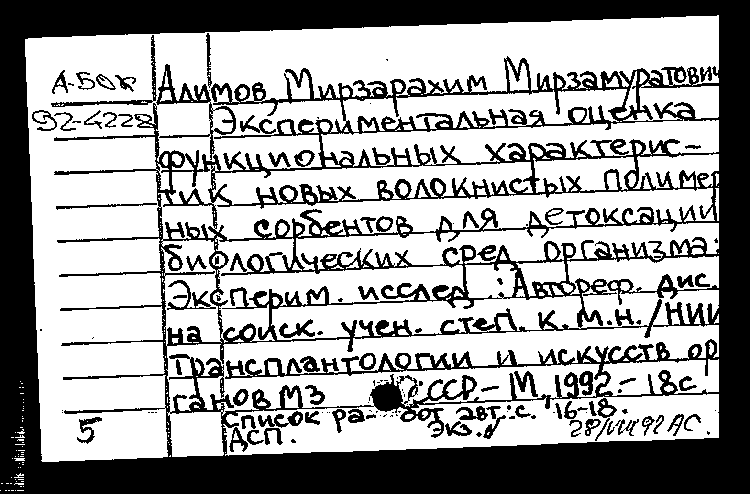 А-50к Алимов, Мирзарахим Мирзамуратович
92-4228 Экспериментальная оценка
функциональных характерис-
тик новых волокнистых полимер
ных сорбентов для детоксации
биологических сред организма:
Эксперим. исслед.: Автореф. дис.
на соиск. учен. степ. к.м.н./НИИ
трансплантологии и искусств. ор
ганов МЗ СССР.-М., 1992.-18с.
5 Список работ авт.: с. 16-18.
ДСП. Экз.